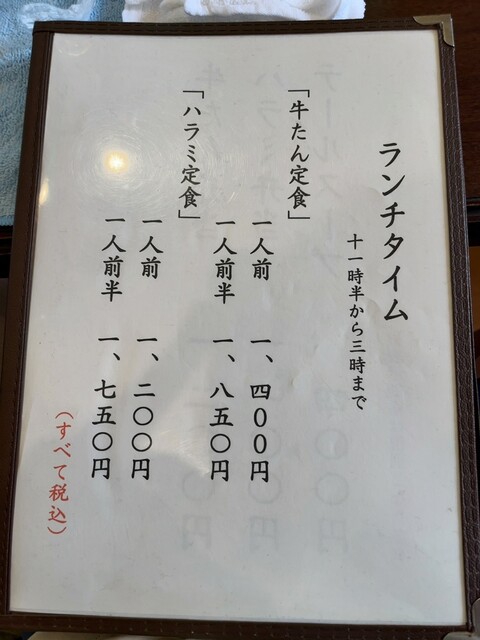 ランチタイム
十一時半から三時まで
「牛たん定食」
一人前 一、四〇〇円
一人前半 一、八五〇円
「ハラミ定食」
一人前 一、二〇〇円
一人前半 一、七五〇円
(すべて税込)